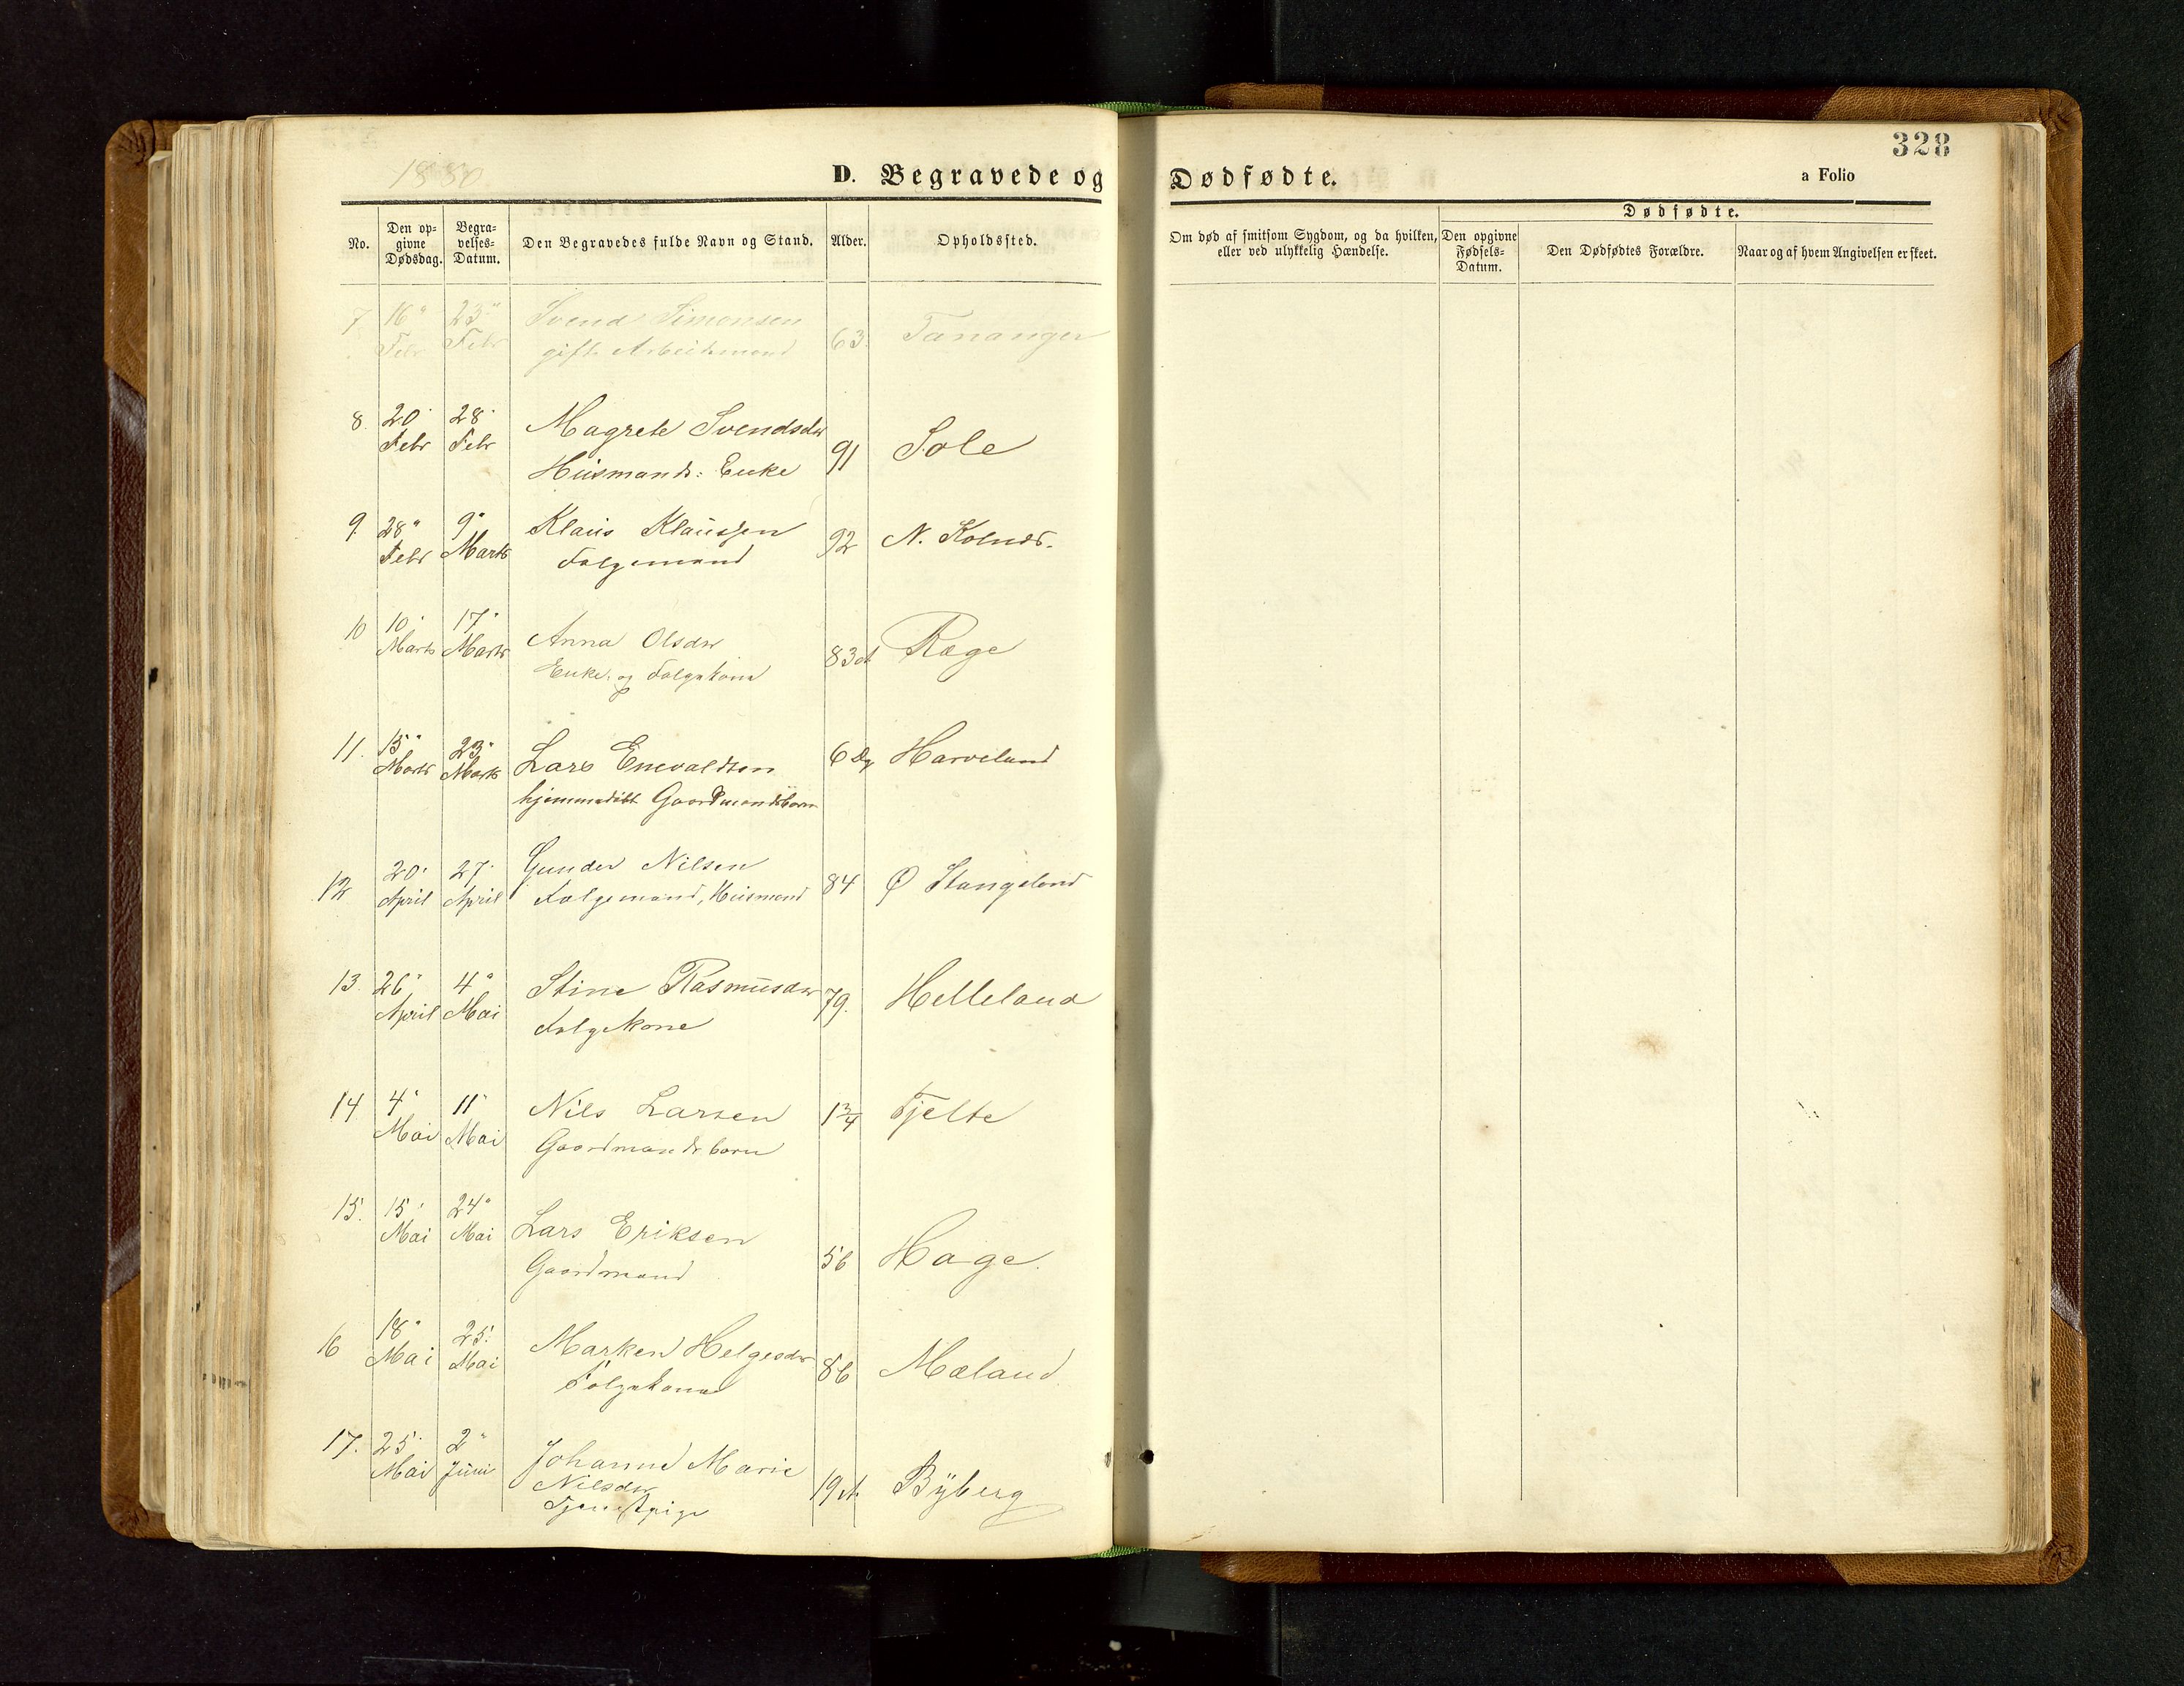 328
1880
D. Begravede og Dødfødte.
a Folio
No.
Den opgivne Dødsdag.
Begravelses-Datum.
Den Begravedes fulde Navn og Stand.
Alder.
Opholdssted.
Om død af smitsom Sygdom, og da hvilken, eller ved ulykkelig Hændelse.
Dødfødte.
Den opgivne Fødsels-Datum.
Den Dødfødtes Forældre.
Naar og af hvem Angivelsen er skeet.
7. 16" Febr 23" Febr Svend Simonsen 63. Tananger
gift Arbeidsmand
8. 20 Febr 28 Febr Magrete Svendsdr 91 Sole
Huusmands: Enke
9. 28" Febr 9" Marts Klaus Klaussen 92 N. Kolnes.
Folgemand
10 10 Marts 17 Marts Anna Olsdr 83 Ræge
Enke: og Folgekone
11. 15" Marts 23" Marts Lars Enevaldsen 6 Dg Harveland
hjemmedøbt Gaardmandsbarn
12 20 April 27 April Gunder Nilsen 84 Ø Stangeland
Folgemand, Huusmand
13. 26" April 4" Mai Stine Rasmusdr 79. Helleland
Folgekone
14. 4" Mai 11" Mai Nils Larsen 1 3/4 Tjelte
Gaardmandsbarn
15. 15 Mai 24" Mai Lars Eriksen 56 Hage.
Gaardmand
16 18" Mai 25. Mai Marken Helgesdr 86 Mæland
Folgekone
17. 25 Mai 2" Juni Johanne Marie 19 Byberg
Nilsdr
Tjenestpige